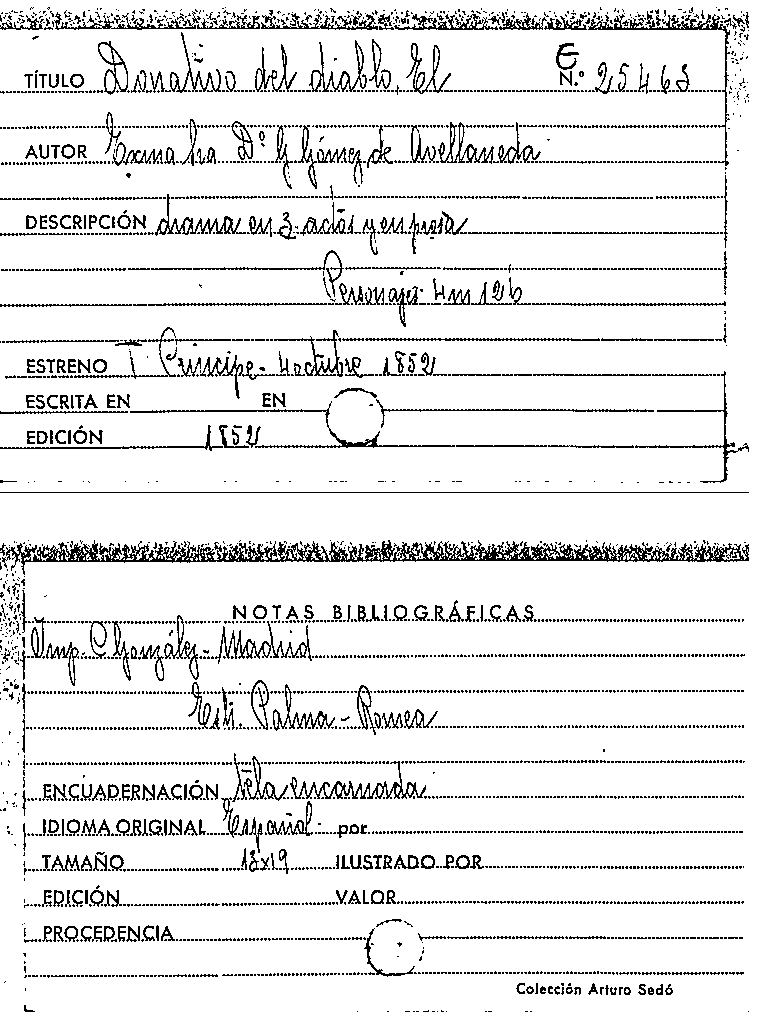 TÍTULO Donativo del diablo, El E N.º 25463
AUTOR Exma Sra Dª G Gómez de Avellaneda
DESCRIPCIÓN drama en 3 actos y en prosa
Personajes 4m 12h
ESTRENO T. Principe - 4 octubre 1852
ESCRITA EN EN
EDICIÓN 1852
NOTAS BIBLIOGRÁFICAS
Imp. C González - Madrid
Est. Palma - Romea
ENCUADERNACIÓN tela encarnada
IDIOMA ORIGINAL Español por
TAMAÑO 13x19 ILUSTRADO POR
EDICIÓN VALOR
PROCEDENCIA
Colección Arturo Sedó